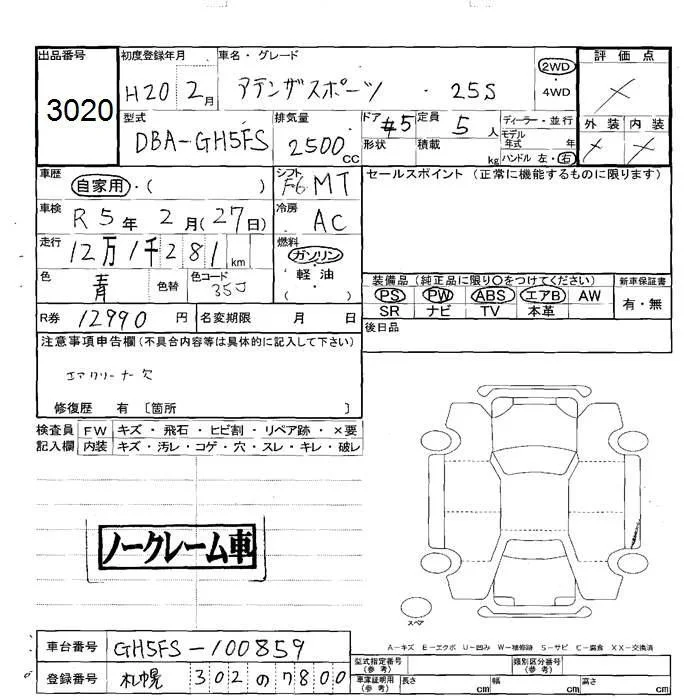 出品番号 初度登録年月 車名・グレード 2WD 評価点
3020 H20 2月 アテンザスポーツ ・ 25S 4WD ×
型式 排気量 ドア #5 定員 5人 ディーラー・並行 外装 内装
DBA-GH5FS 2500cc 形状 積載 kg モデル年式 年 × ×
ハンドル 左・右
車歴 自家用・( ) シフト F6 MT セールスポイント (正常に機能するものに限ります)
車検 R5年2月(27日) 冷房 AC
走行 12万1千281km 燃料 ガソリン・軽油・( )
色 青 色替 色コード 35J 装備品 (純正品に限り○をつけてください) 新車保証書
PS PW ABS エアB AW 有・無
SR ナビ TV 本革
R券 12990円 名変期限 月 日 後日品
注意事項申告欄(不具合内容等は具体的に記入して下さい)
エアクリーナー欠
修復歴 有 〔箇所 〕
検査員 FW キズ・飛石・ヒビ割・リペア跡・×要
記入欄 内装 キズ・汚レ・コゲ・穴・スレ・キレ・破レ
ノークレーム車
スペア
A-キズ E-エクボ U-凹み W-補修跡 S-サビ C-腐食 XX-交換済
車台番号 GH5FS-100859 型式指定番号(参考) 類別区分番号(参考)
登録番号 札幌 302の7800 車庫証明用(参考) 長さ cm 幅 cm 高さ cm